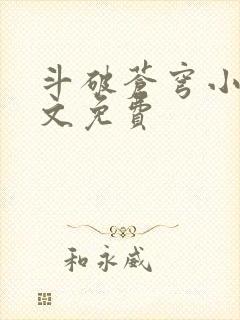 斗破苍穹小
文免费
和永威